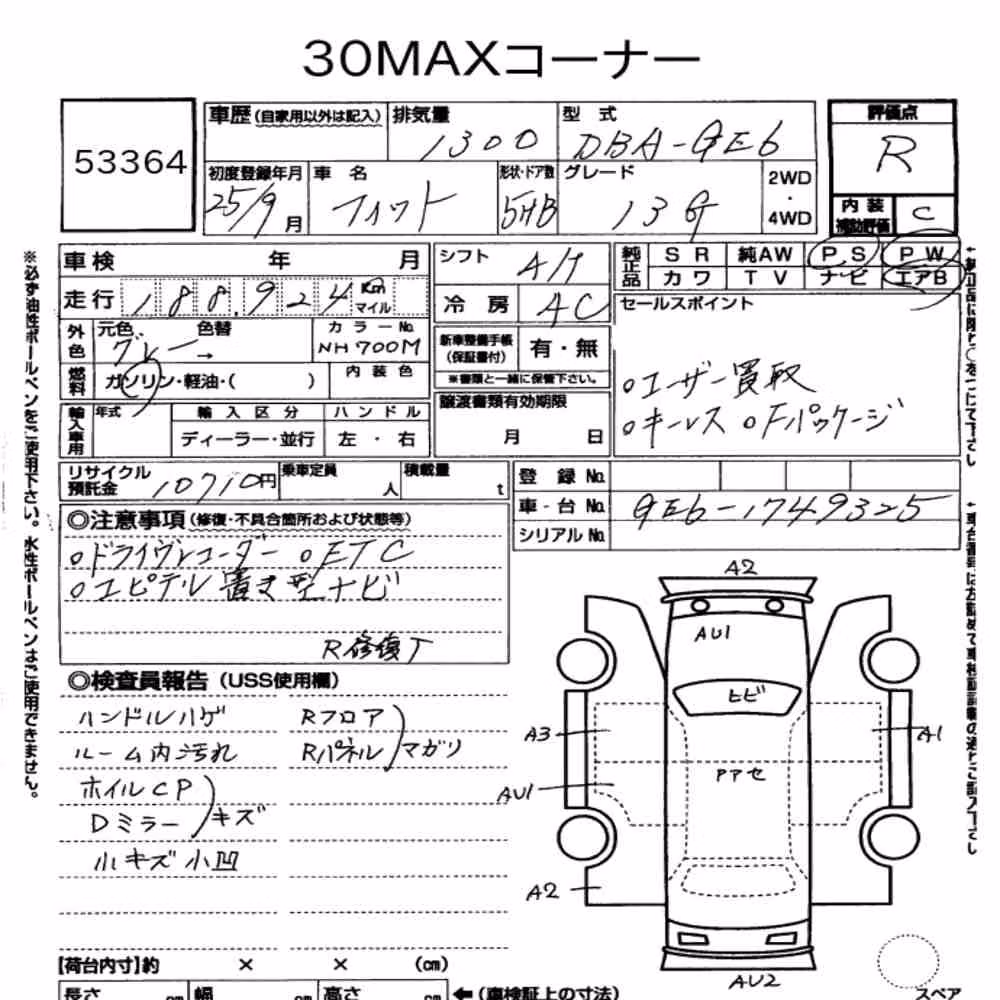 30MAXコーナー
53364
車歴(自家用以外は記入) 排気量 型 式 評価点
1300 DBA-GE6 R
初度登録年月 車 名 形状・ドア数 グレード 2WD・4WD 内装補助評価
25/9月 フィット 5HB 13G C
※必ず油性ボールペンをご使用下さい。水性ボールペンはご使用できません。
車検 年 月
走行 188.924 Km マイル
外色 元色 色替 カラーNo.
グレー → NH700M
燃料 ガソリン・軽油・( ) 内装色
輸入車用 年式 輸入区分 ハンドル
ディーラー・並行 左・右
シフト A/T
冷房 AC
新車整備手帳(保証書付) 有・無
※書類と一緒に保管下さい。
譲渡書類有効期限
月 日
純正品 SR 純AW PS PW
カワ TV ナビ エアB
セールスポイント
○ユーザー買取
○キーレス ○Fパッケージ
リサイクル預託金 10710円 乗車定員 人 積載量 t
登録No.
車台No. GE6-1749325
シリアルNo.
◎注意事項(修復・不具合箇所および状態等)
○ドライブレコーダー ○ETC
○エピテル 置き型ナビ
R修復丁
◎検査員報告(USS使用欄)
ハンドルハゲ Rフロア
ルーム内汚れ Rパネル マガリ
ホイルCP
Dミラー キズ
小キズ小凹
A2
AU1
ヒビ
A3 A1
PアセAU1
A2
AU2
スペア
【荷台内寸】約 × × (cm)
長さ cm 幅 cm 高さ cm ←(車検証上の寸法)